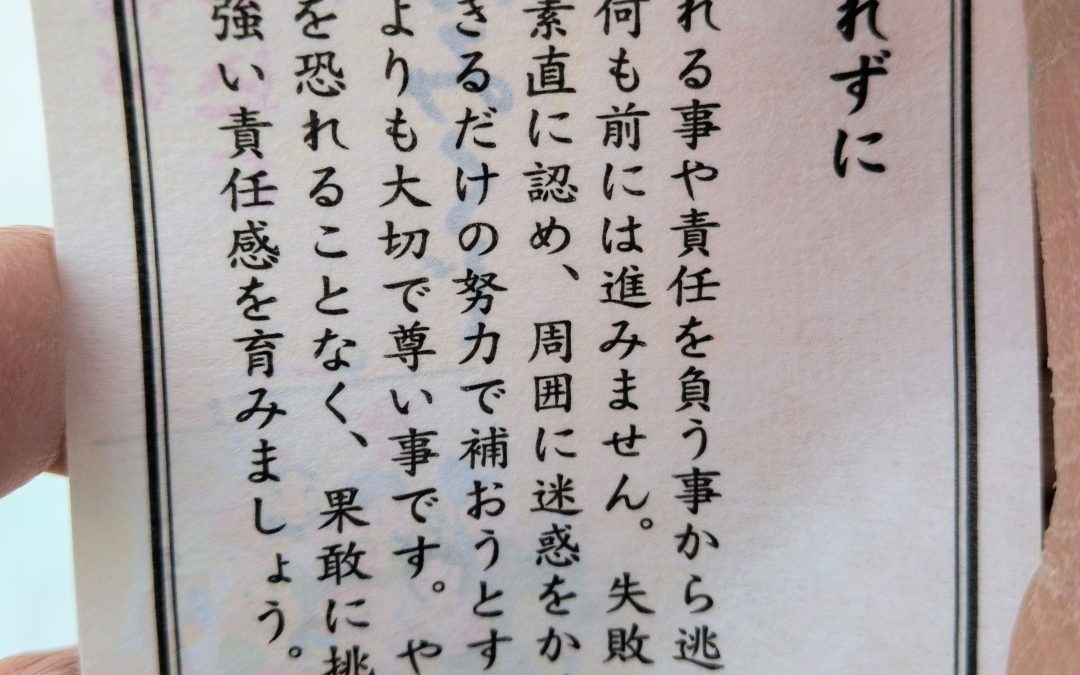 れずに
れる事や責任を負う事から逃
何も前には進みません。失敗
素直に認め、周囲に迷惑をか
きるだけの努力で補おうとす
よりも大切で尊い事です。や
を恐れることなく、果敢に挑
強い責任感を育みましょう。